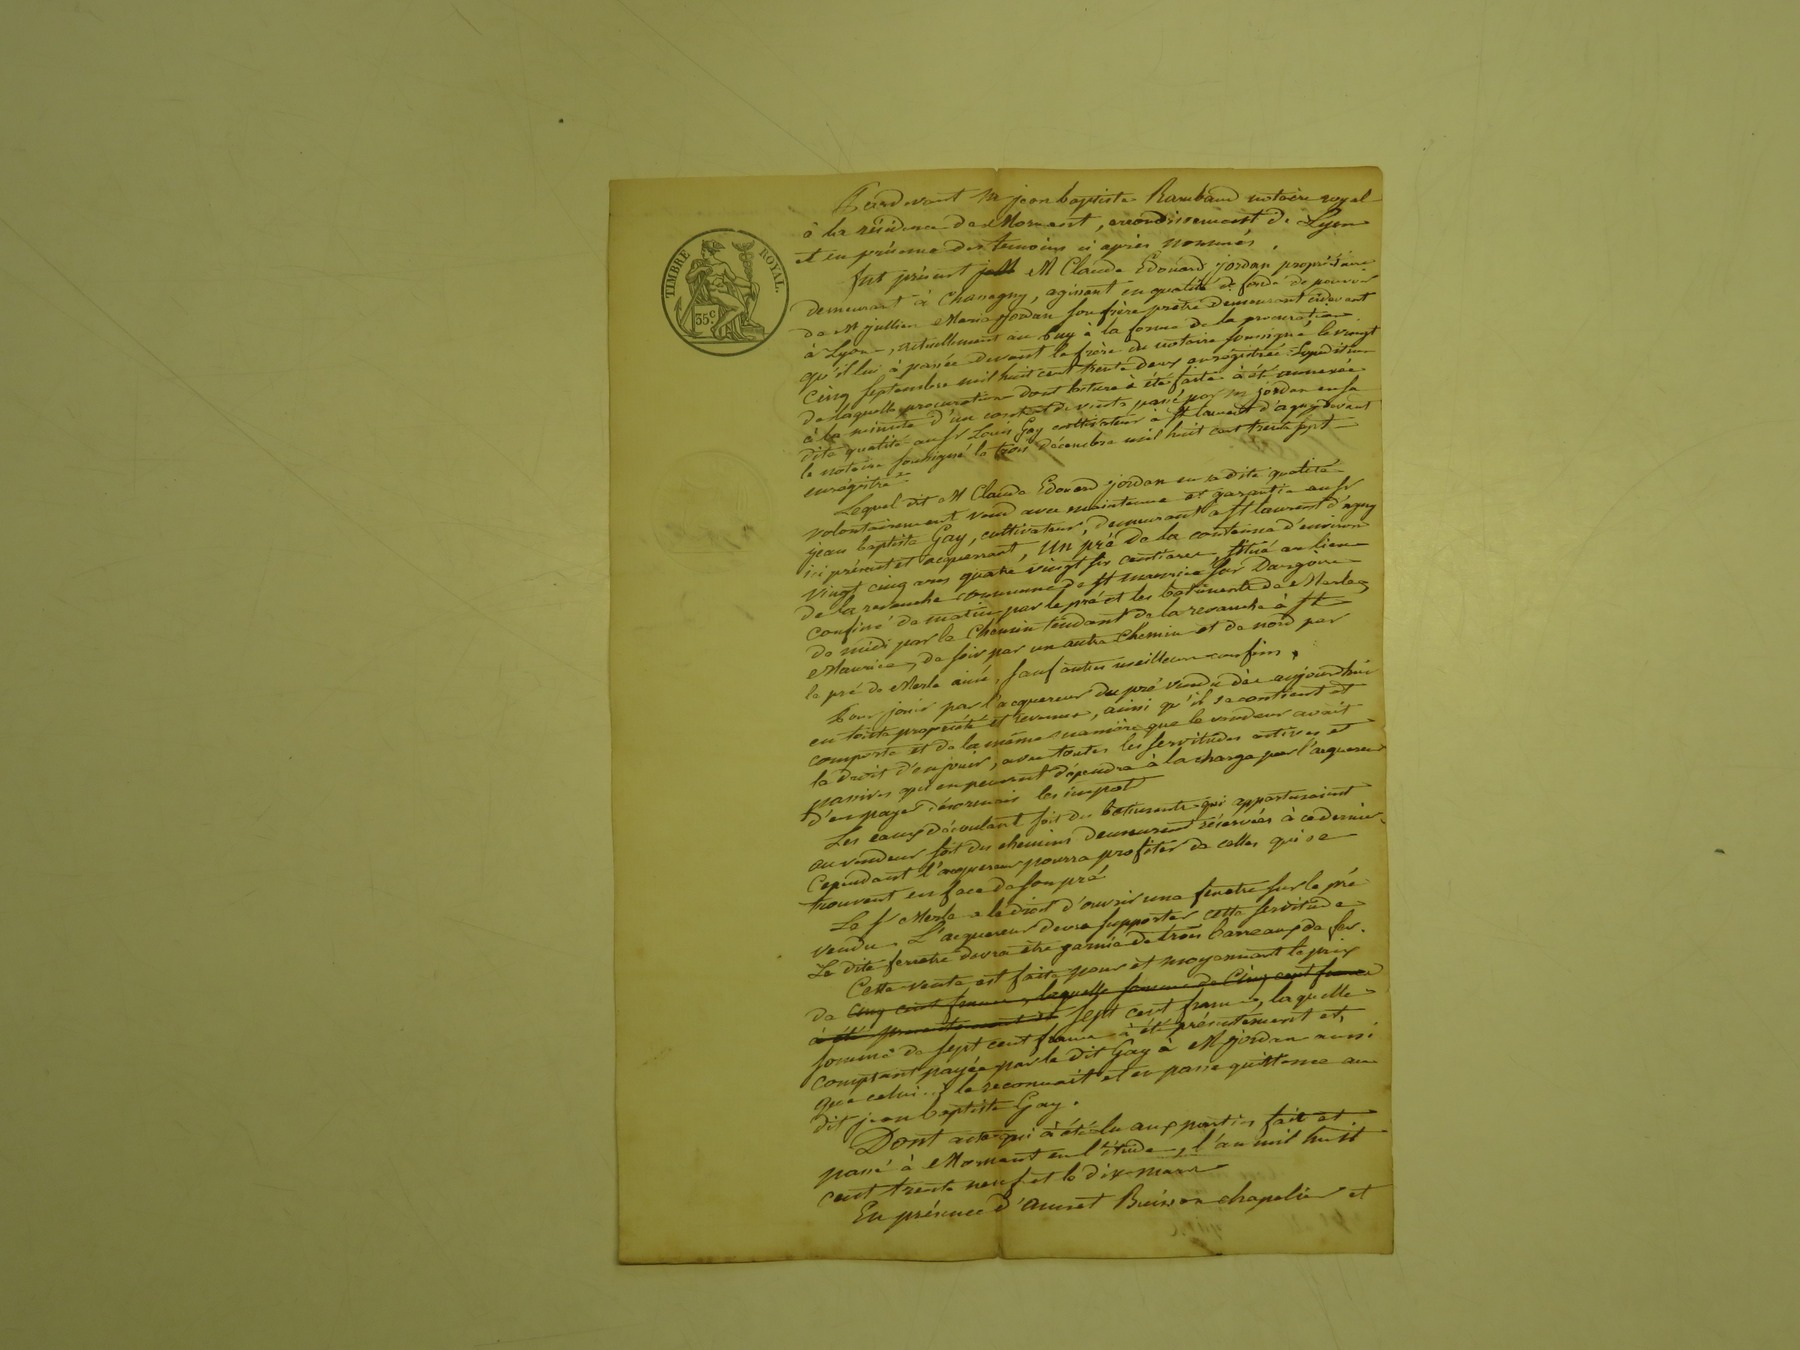 TIMBRE ROYAL.
35c
Pardevant Me jean baptiste Rambaud notaire royal
à la résidence de Mornant, arrondissement de Lyon
et en présence des temoins ci après nommés.
fut présent M Claude Edouard jordan propriétaire
demeurant à Chassagny, agissant en qualité de fondé de pouvoir
de M jullien Maria jordan son frère prêtre demeurant cidevant
à Lyon, actuellement au Puy à la forme de la procuration
qu'il lui à passée devant le frère du notaire soussigné le vingt
cinq septembre mil huit cent trente deux enregistrée. Expédition
de laquelle procuration dont lecture à été faite à été annexée
à la minute d'un contrat de vente passé par M jordan en sa
dite qualité au sr Louis Gay cultivateur à St laurent d'agny devant
le notaire soussigné le trois décembre mil huit cent trente sept
enrégistré
Lequel dit M Claude Edouard jordan en sa dite qualité
volontairement vend avec maintenue et garantie au sr
jean baptiste Gay, cultivateur, demeurant a St laurent d'agny
ici présent et acquerrant, Un pré de la contenue d'environ
vingt cinq ares quatre vingt six centiares, situé au lieu
de la revanche commune de St maurice sur Dargoire
confiné de matin par le pré et les batiments de Merle,
de midi par le Chemin tendant de la revanche à St
Maurice, de soir par un autre chemin et de nord par
le pré de Merle ainé, sauf autres meilleurs confins.
Pour jouir par l'acquereur du pré vendu dès aujourd'hui
en toute propriété et revenus, ainsi qu'il se contient et
comporte et de la même manière que le vendeur avait
le droit d'en jouir, avec toutes les servitudes actives et
passives qui en peuvent dépendre à la charge par l'acquereur
d'en payer désormais les impot
Les eaux découlant soit des batiments qui appartenaient
au vendeur soit des chemins demeurent réservées à ce dernier
Cependant l'acquereur pourra profiter de celles qui se
trouvent en face de son pré
Le sr Merle a le droit d'ouvrir une fenetre sur le pré
vendu. L'acquereur devra supporter cette servitude
La dite fenetre devra être garnie de trois barreaux de fer.
Cette vente est faite pour et moyennant le prix
de cinq cent francs, laquelle somme de cinq cent francs
à été presentement et sept cent francs, laquelle
somme de sept cent francs à été présentement et
comptant payée par le dit Gay à M jordan ainsi
que celui-ci le reconnait et en passe quittance au
dit jean baptiste Gay.
Dont acte qui à été lu aux parties fait et
passé à Mornant en l'étude, l'an mil huit
cent trente neuf et le dix mars
En présence d'Aunet Buisson chapelier et